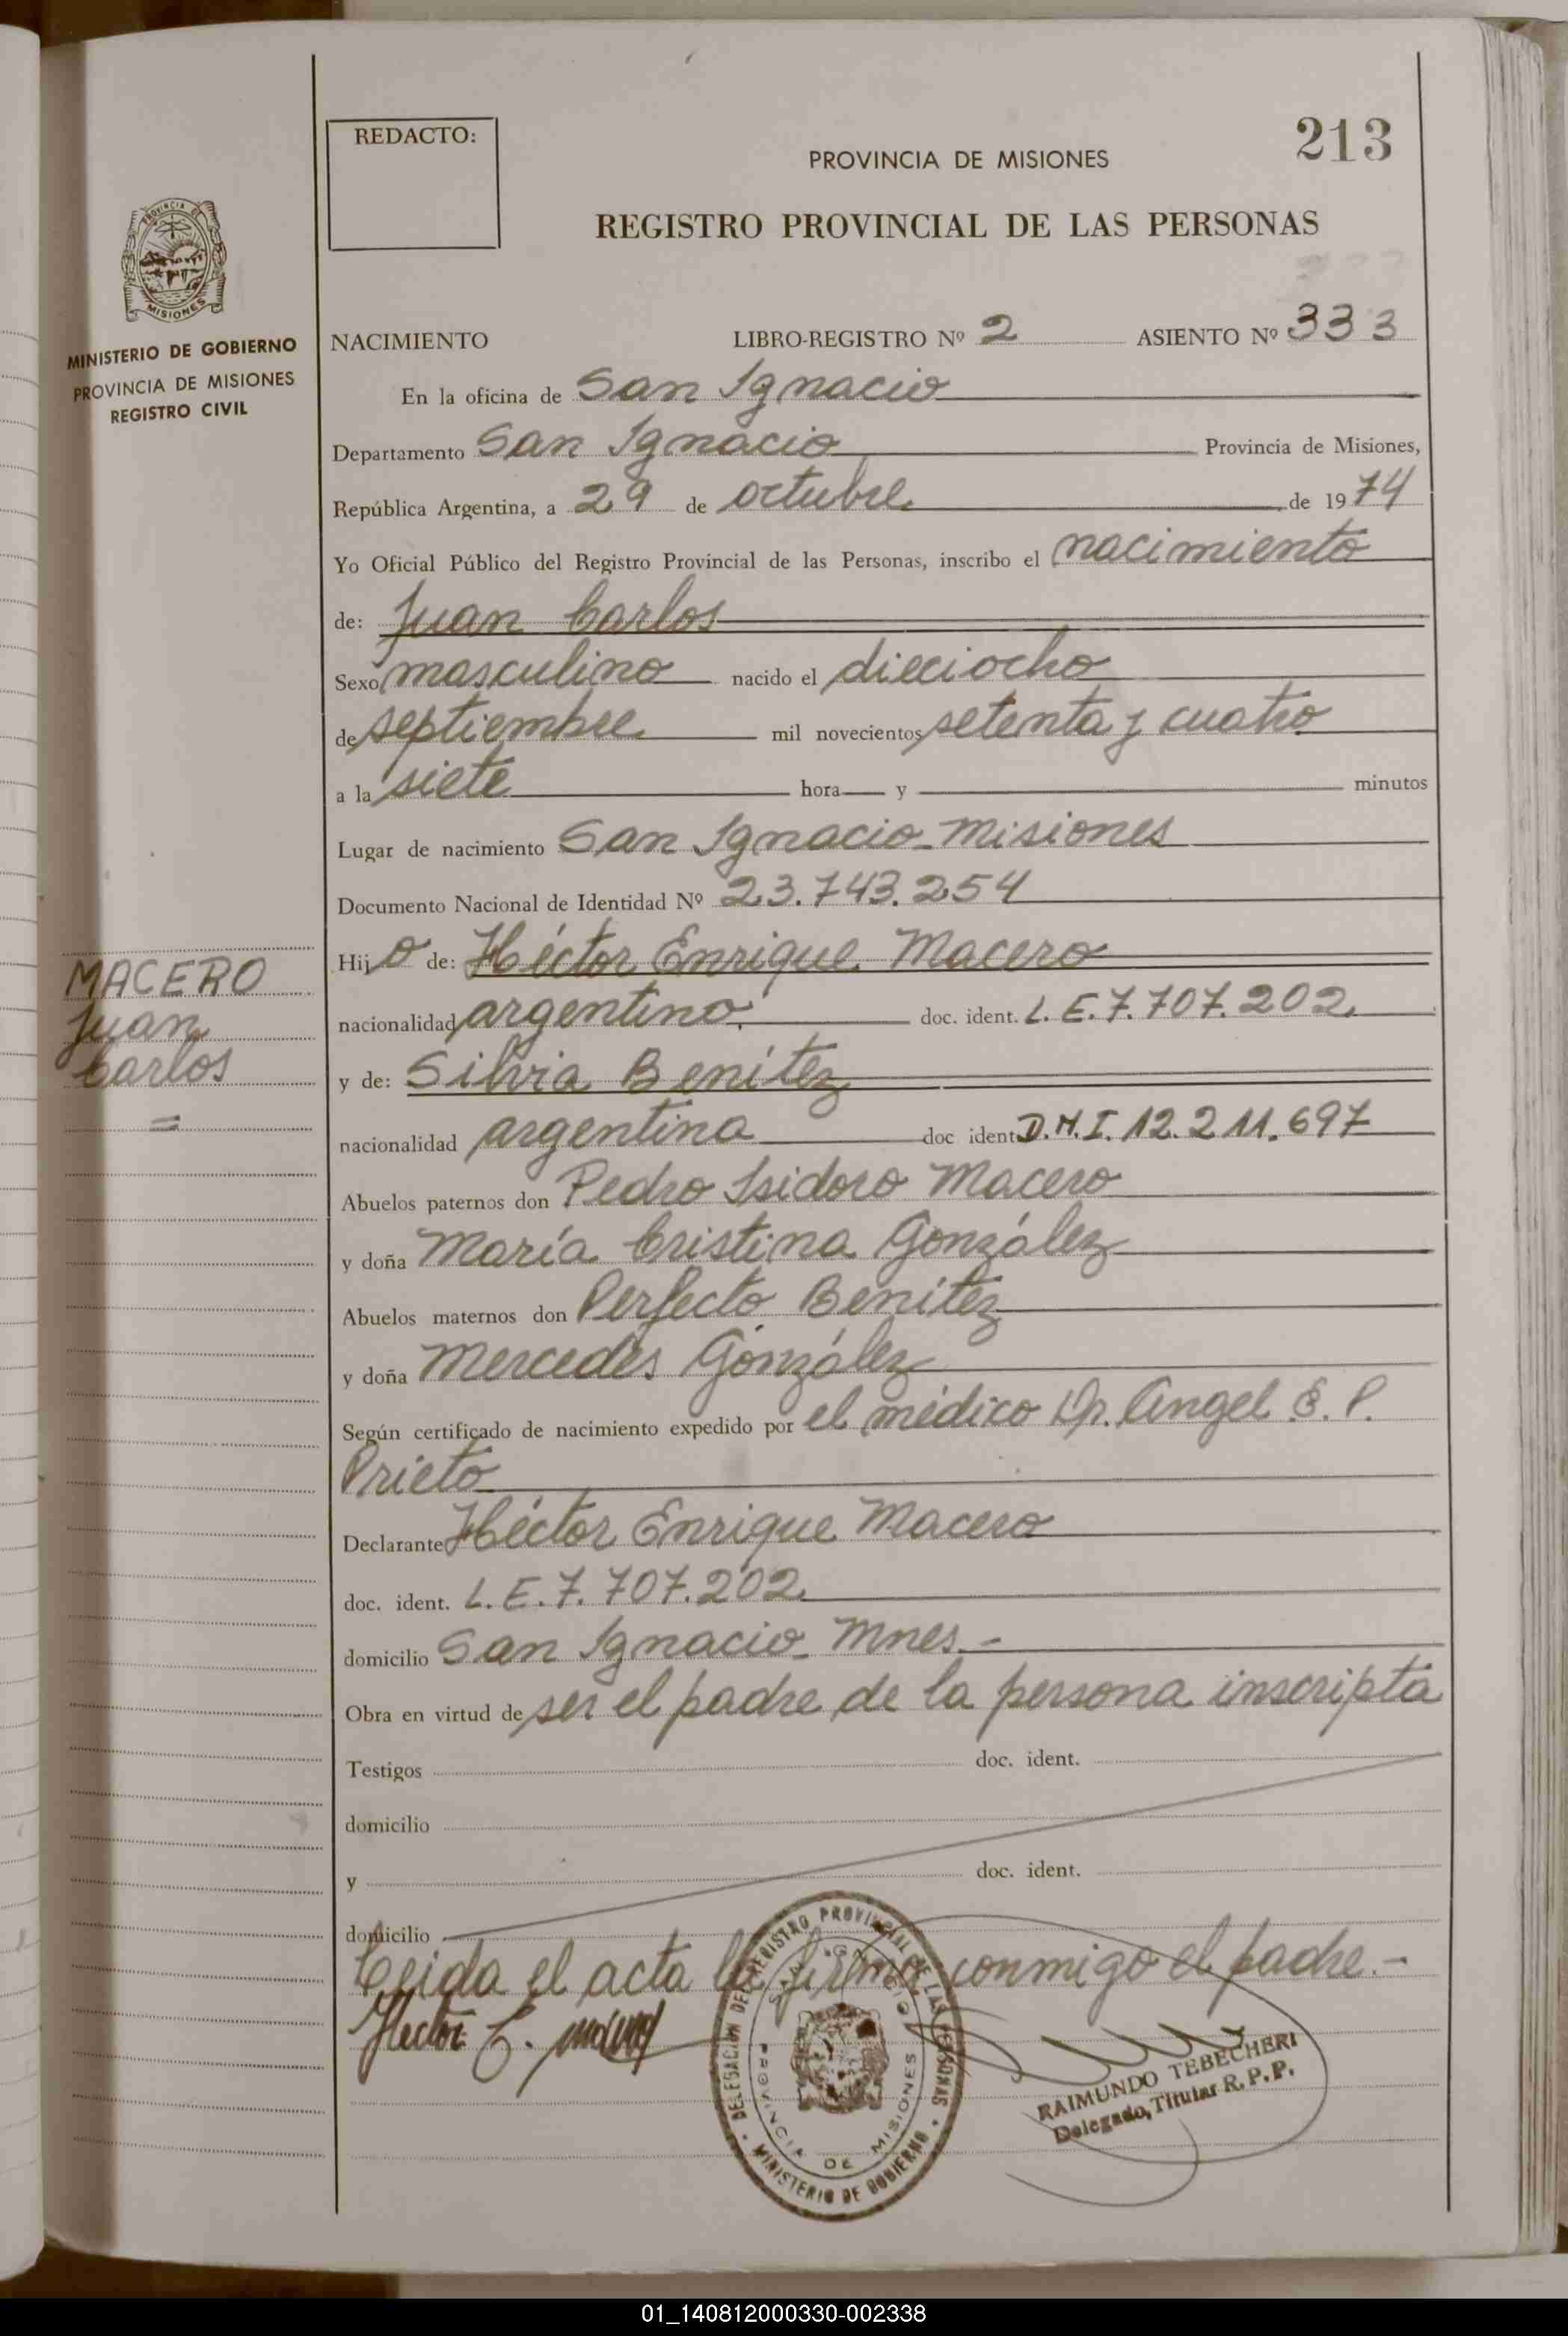 REDACTO:
213
PROVINCIA DE MISIONES
REGISTRO PROVINCIAL DE LAS PERSONAS
PROVINCIA DE
MISIONES
MINISTERIO DE GOBIERNO
PROVINCIA DE MISIONES
REGISTRO CIVIL
NACIMIENTO LIBRO-REGISTRO Nº 2 ASIENTO Nº 333
En la oficina de San Ignacio
Departamento San Ignacio Provincia de Misiones,
República Argentina, a 29 de octubre de 1974
Yo Oficial Público del Registro Provincial de las Personas, inscribo el nacimiento
de: Juan Carlos
Sexo masculino nacido el dieciocho
de septiembre mil novecientos setenta y cuatro
a la siete hora y minutos
Lugar de nacimiento San Ignacio - Misiones
Documento Nacional de Identidad Nº 23.743.254
Hijo de: Héctor Enrique Macero
nacionalidad argentino doc. ident. L.E. 7.707.202
y de: Silvia Benítez
nacionalidad argentina doc ident D.N.I. 12.211.697
Abuelos paternos don Pedro Isidoro Macero
y doña María Cristina González
Abuelos maternos don Perfecto Benítez
y doña Mercedes González
Según certificado de nacimiento expedido por el médico Dr. Angel E. P.
Prieto
Declarante Héctor Enrique Macero
doc. ident. L.E. 7.707.202
domicilio San Ignacio - Mnes.-
Obra en virtud de ser el padre de la persona inscripta
Testigos doc. ident.
domicilio
y doc. ident.
domicilio
Leida el acta la firma conmigo el padre.-
Hector E.
MACERO
Juan
Carlos
=
DELEGACION DEL REGISTRO PROVINCIAL DE LAS PERSONAS
SAN IGNACIO
PROVINCIA DE MISIONES
MINISTERIO DE GOBIERNO
RAIMUNDO TEBECHERI
Delegado Titular R.P.P.
01_140812000330-002338